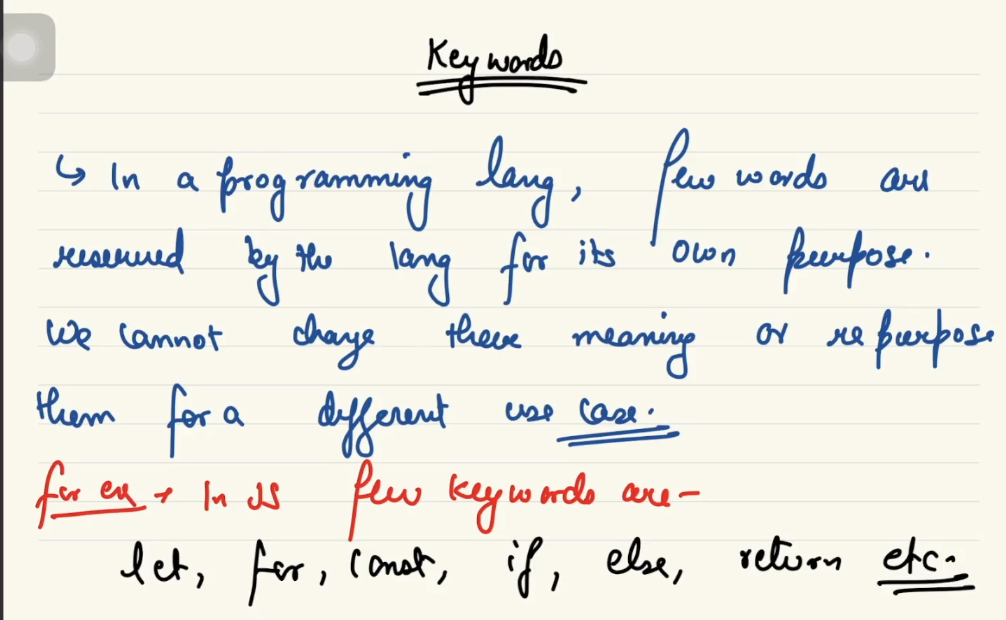 Keywords
↳ In a programming lang, few words are
reserved by the lang for its own purpose.
We cannot change there meaning or repurpose
them for a different use case.
for ex → In JS few keywords are-
let, for, const, if, else, return etc.